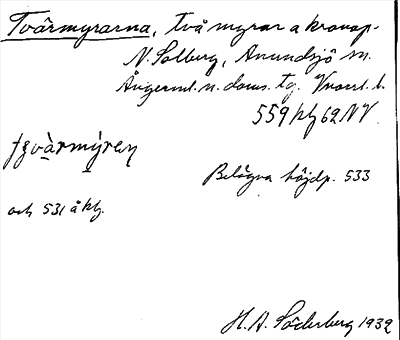 Tvärmyrarna, två myrar a kronop.
N. Solberg, Anundsjö sn.
Ångerml. n. doms. tg. Vnorrl. l.
559 kbl 62 NV.
Belägna höjdp. 533
och 531 å kbl.
H. A. Söderberg 1932